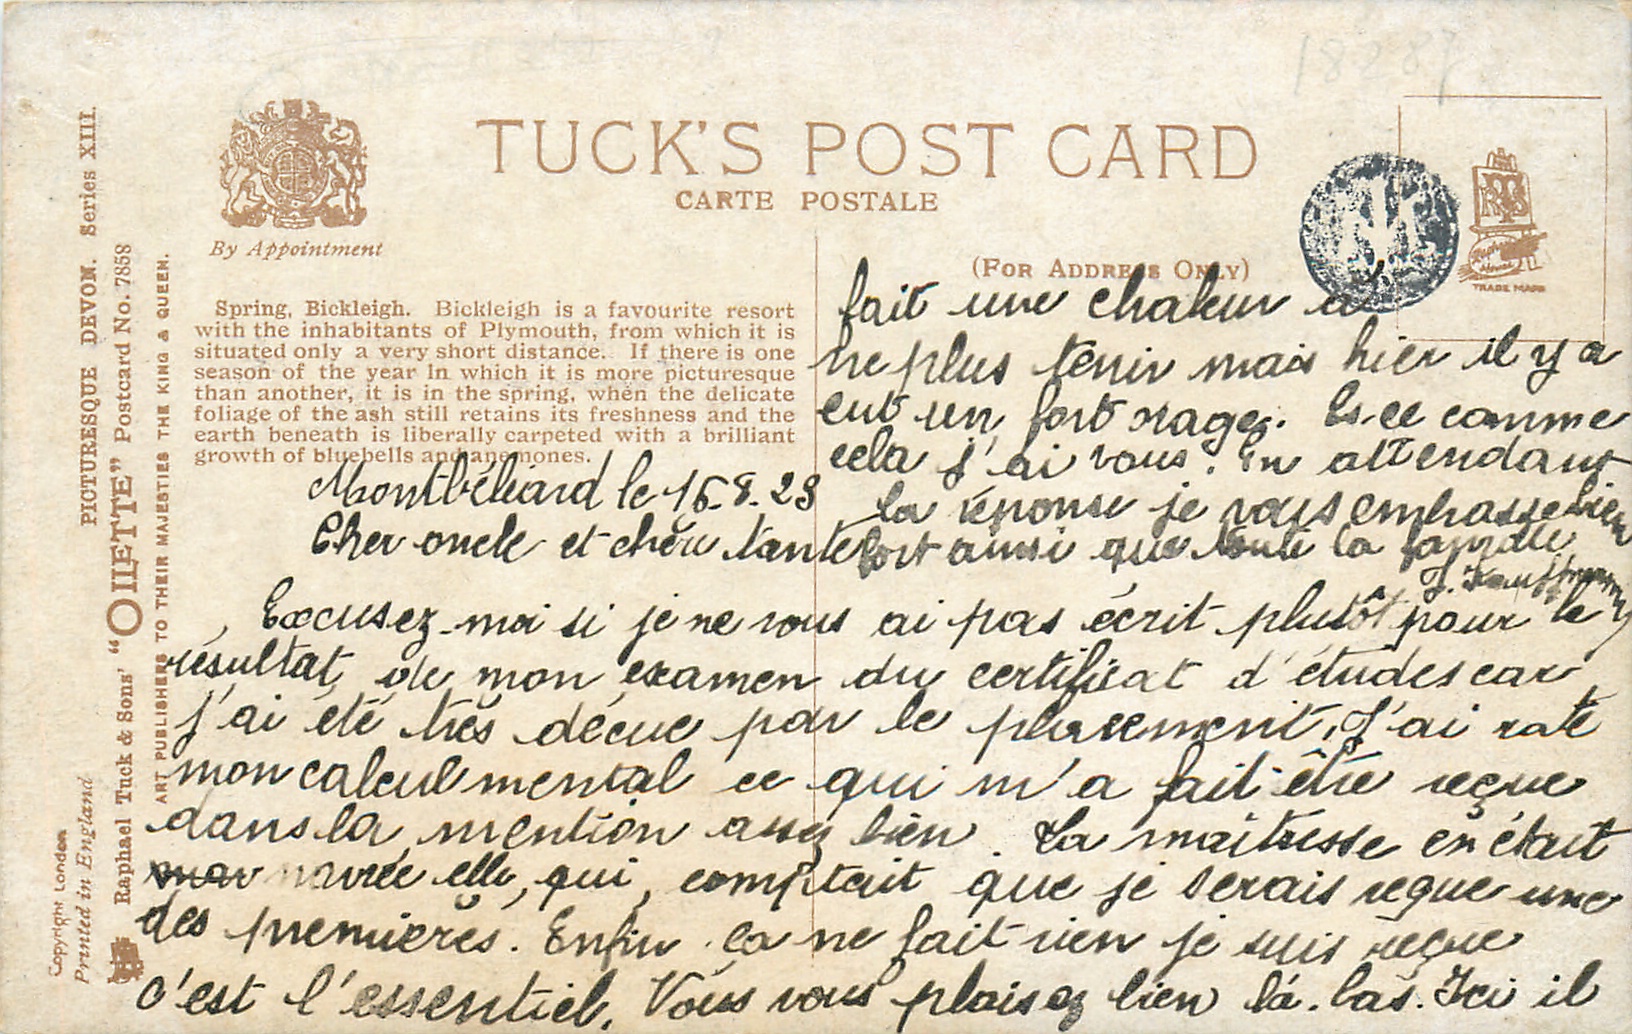 18287
TUCK'S POST CARD
CARTE POSTALE
By Appointment
(FOR ADDRESS ONLY)
TRADE MARK
PICTURESQUE DEVON. Series XIII.
Raphael Tuck & Sons' "OILETTE" Postcard No. 7858
ART PUBLISHERS TO THEIR MAJESTIES THE KING & QUEEN.
Copyright London
Printed in England
Spring, Bickleigh. Bickleigh is a favourite resort
with the inhabitants of Plymouth, from which it is
situated only a very short distance. If there is one
season of the year in which it is more picturesque
than another, it is in the spring, when the delicate
foliage of the ash still retains its freshness and the
earth beneath is liberally carpeted with a brilliant
growth of bluebells and anemones.
Montbéliard le 16-8-23
Cher oncle et chère tante
Excusez-moi si je ne vous ai pas écrit plutôt pour le
résultat de mon examen du certificat d'études car
j'ai été très déçue par le placement. J'ai raté
mon calcul mental ce qui m'a fait être reçue
dans la mention assez bien. La maîtresse en était
navrée elle, qui, comptait que je serais reçue une
des premières. Enfin ça ne fait rien je suis reçue
c'est l'essentiel. Vous vous plaisez bien là-bas. Ici il
fait une chaleur à
ne plus tenir mais hier il y a
eut un fort orage. Es-ce comme
cela j'ai vous. En attendant
la réponse je vous embrasse bien
fort ainsi que toute la famille
J. Kauffmann